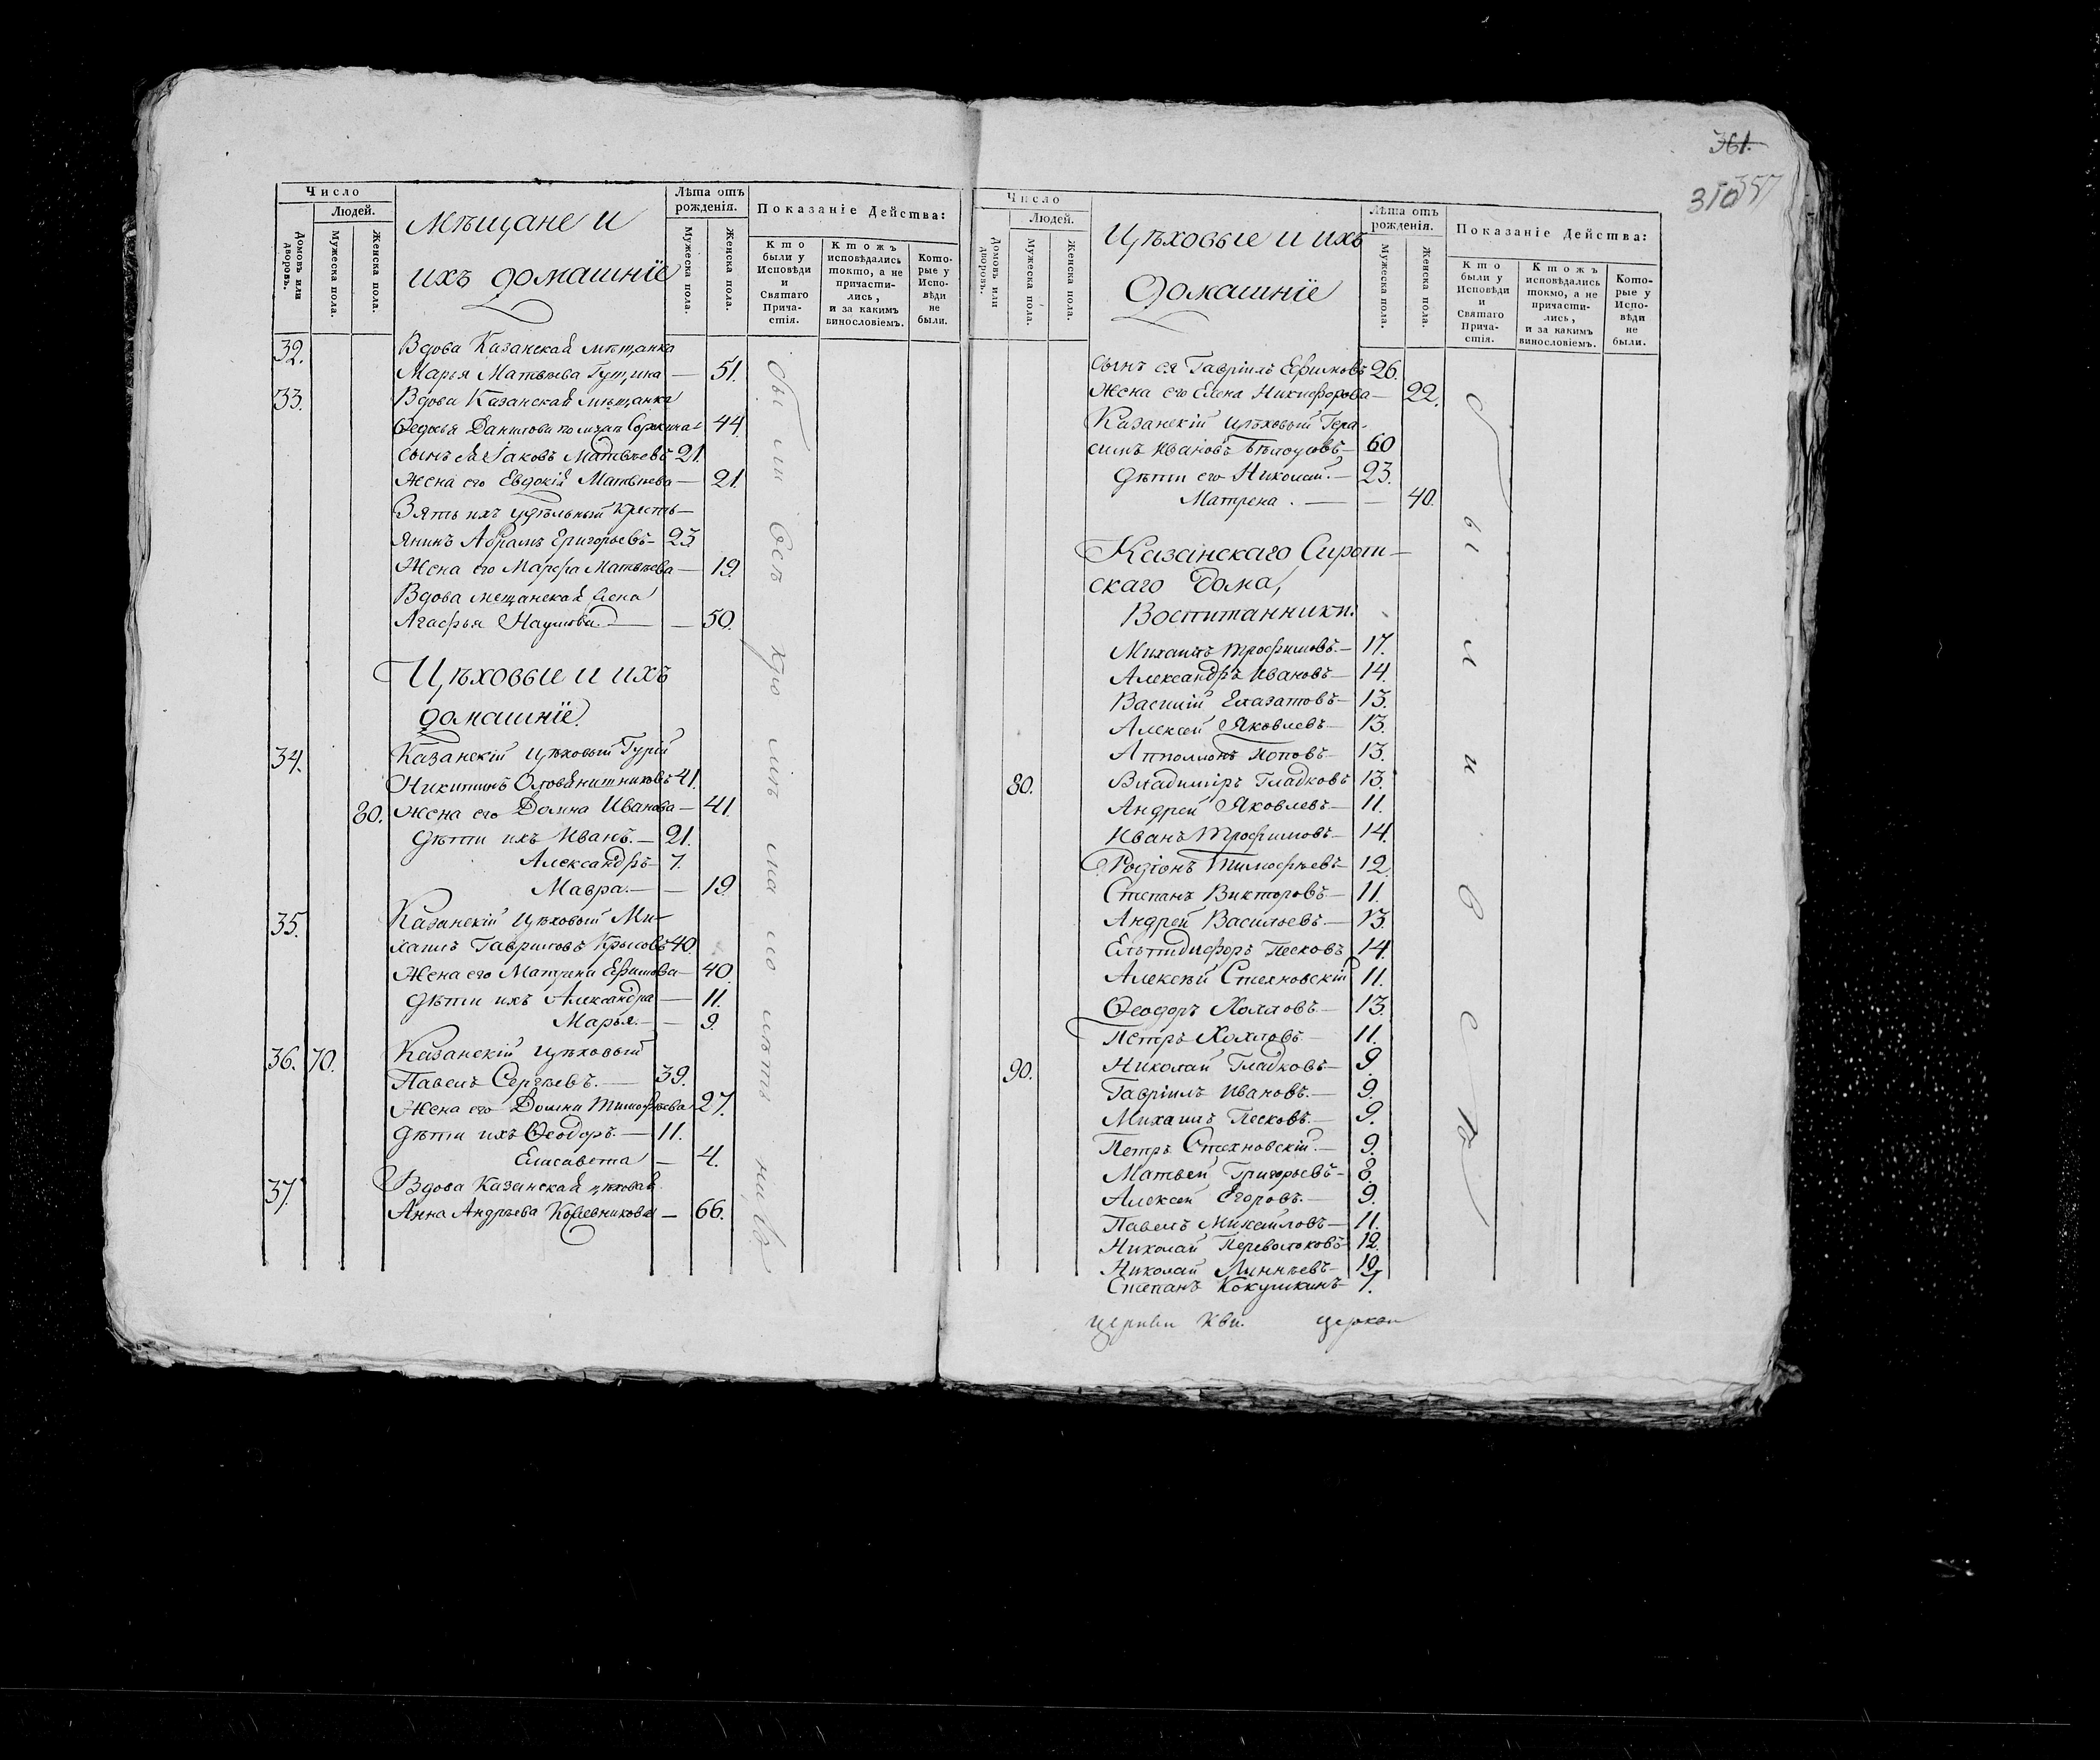 361.
310 357
Число
Людей.
Домовъ или дворовъ.
Мужеска пола.
Женска пола.
Мѣщане и
ихъ домашніе
Лѣта отъ рожденія.
Мужеска пола.
Женска пола.
Показаніе Действа:
Кто были у Исповѣди и Святаго Прича-стія.
Ктожъ исповѣдались токмо, а не причасти-лись, и за какимъ винословіемъ.
Кото-рые у Испо-вѣди не были.
32. Вдова Казанская мѣщанка
Марья Матвѣева — 51.
33. Вдова Казанская мѣщанка
Ѳедосья Данилова по мужѣ Сорокина 44.
сынъ ея Іаковъ Матвѣевъ 21.
Жена его Евдокія Матвѣева — 21.
Зять ихъ удѣльный кресть-
янинъ Абрамъ Григорьевъ — 23
Жена его Марѳа Матвѣева — 19.
Вдова мещанская жена
Агафья Наумова — 50.
Цѣховые и ихъ
домашніе
34. Казанскій цѣховый Гурій
Никитинъ 41.
80. Жена его Домна Иванова — 41.
дѣти ихъ Иванъ. — 21.
Александръ — 7.
Мавра. — 19.
35. Казанскій цѣховый Ми-
хаилъ Гавриловъ Крыловъ 40.
Жена его Матрена Ефимова — 40.
дѣти ихъ Александра — 11.
Марья. — 9.
36. 70. Казанскій цѣховый
Павелъ Сергѣевъ. — 39.
Жена его Домна Тимофѣева 27.
дѣти ихъ Ѳеодоръ. — 11.
Елисавета — 4.
37. Вдова Казанская цѣховая
Анна Андрѣева Кожевникова — 66.
были всѣ кромѣ малолѣтныхъ
Число
Людей.
Домовъ или дворовъ.
Мужеска пола.
Женска пола.
Цѣховые и ихъ
домашніе
Лѣта отъ рожденія.
Мужеска пола.
Женска пола.
Показаніе Действа:
Кто были у Исповѣди и Святаго Прича-стія.
Ктожъ исповѣдались токмо, а не причасти-лись, и за какимъ винословіемъ.
Кото-рые у Испо-вѣди не были.
сынъ ея Гавріилъ Ефимовъ 26.
Жена его Елена Никифорова — 22.
Казанскій цѣховый Гера-
симъ Ивановъ Бѣлоусовъ — 60
дѣти его Николай. — 23.
Матрена. — 40.
Казанскаго Сирот-
скаго дома,
Воспитанники.
Михаилъ Трофимовъ. — 17.
Александръ Ивановъ — 14.
Василій — 13.
Алексей Яковлевъ — 13.
Апполлонъ Поповъ — 13.
80. Владиміръ Гладковъ 13.
Андрей Яковлевъ — 11.
Иванъ Трофимовъ — 14.
Родіонъ Тимофѣевъ — 12.
Степанъ Викторовъ — 11.
Андрей Васильевъ — 13.
Елпидифоръ Песковъ 14.
Алексѣй Стехновскій 11.
Ѳеодоръ Хохловъ. — 13.
Петръ Хохловъ. 11.
90. Николай Гладковъ — 9.
Гавріилъ Ивановъ. — 9.
Михаилъ Песковъ. — 9.
Петръ Стехновскій. — 9.
Матвей Григорьевъ — 8.
Алексей Егоровъ. — 9.
Павелъ Михайловъ — 11.
Николай Переволоковъ 12.
Николай 10.
Степанъ Кокушкинъ 7.
были всѣ
церкви